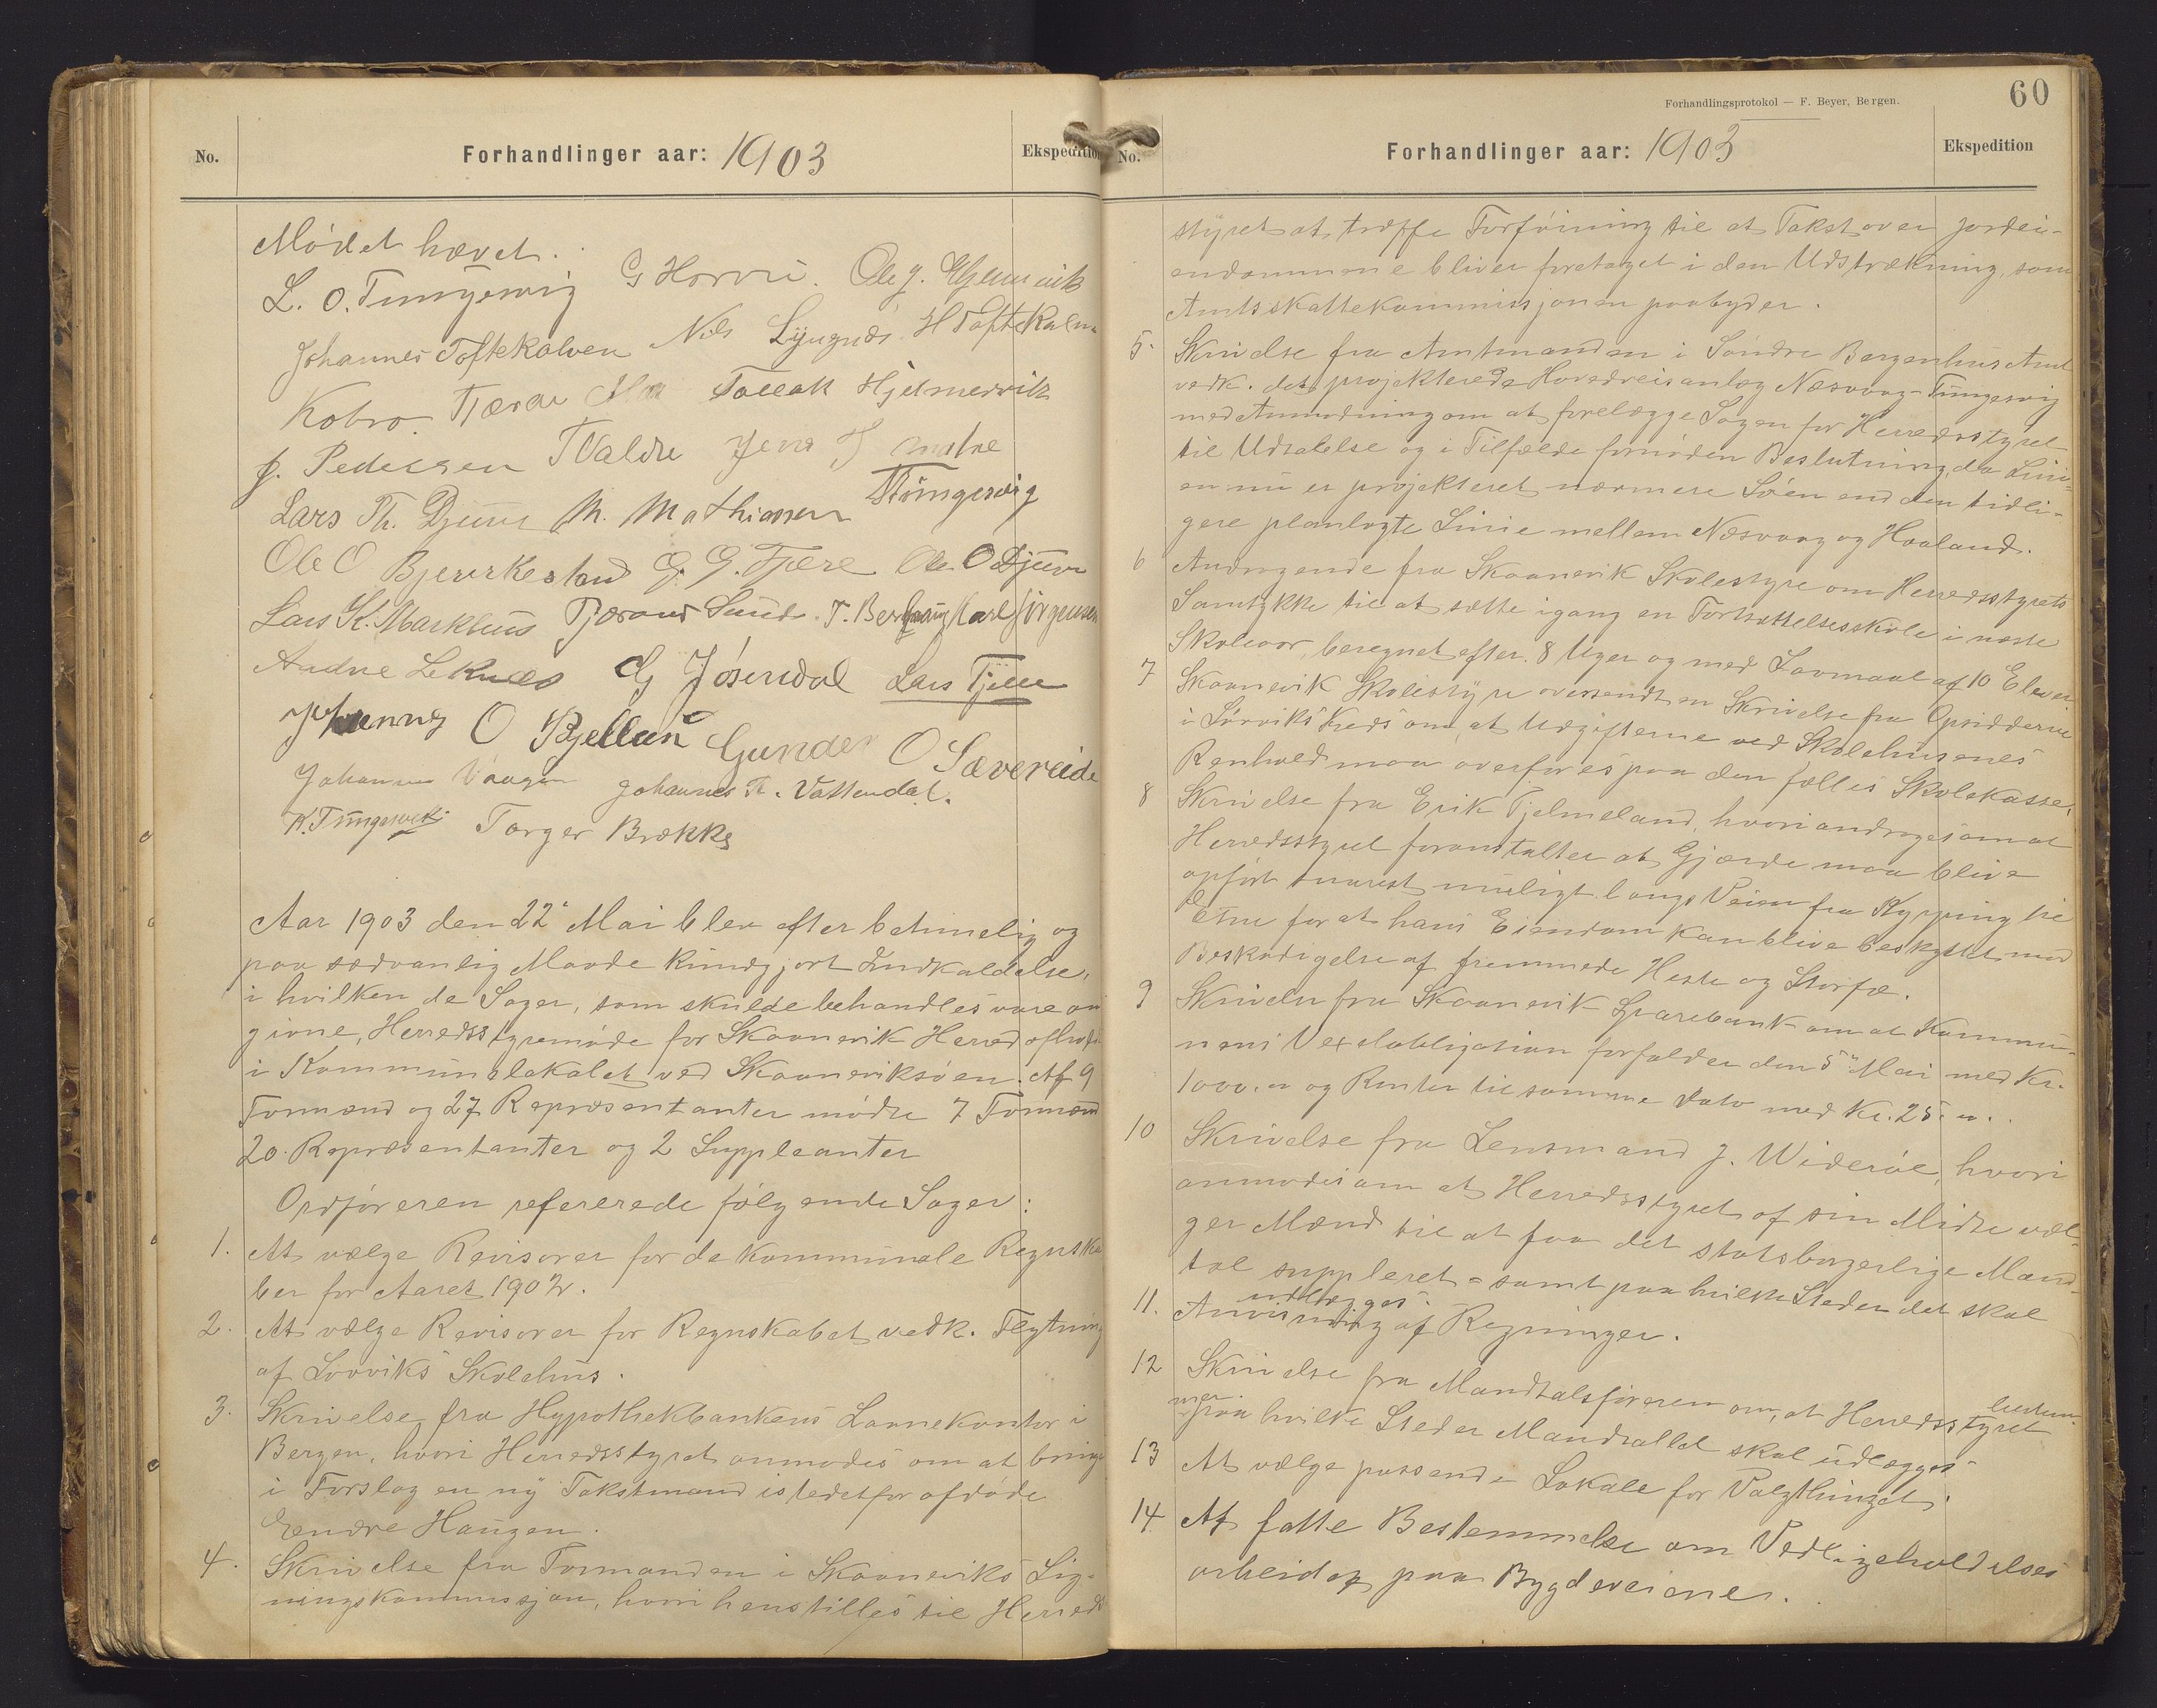 No.
Forhandlinger aar: 1903
Ekspedition
Mødet hævet.
L. O. Tungesvig G Horvei. Ole J.
Johannes Toftekalven Nils Lyngnæs H Toftekalven
Kobro. Tollak Hjelmervik
J. Pedersen T Valdre Jens J Matre
Lars Th. Djuve M. Mathiassen Tungesvig
Ole O Bjerrkestand G. G. Fjære Ole O Djuve
Lars K. Markhus Tjæran Sund. T. Berhaug Carl Jørgensen
Andve Leknæs G Jøsendal Lars Fjære
O Bjelland Gunder O Sævereide
Johannes Vaagen Johannes Th. Vattendal.
K. Tungesvik Torger Brekke
Aar 1903 den 22de Mai blev efter betimelig og
paa sædvanlig Maade kundgjort Indkaldelse,
i hvilken de Sager, som skulde behandles vare an
givne, Herredsstyremøde for Skaanevik Herred afholdt
i Kommunelokalet ved Skaaneviksøen. Af 9
Formænd og 27 Repræsentanter mødte 7 Formænd
20 Repræsentanter og 2 Suppleanter
Ordføreren refererede følgende Sager:
1. At vælge Revisorer for de kommunale Regnska
ber for Aaret 1902.
2. At vælge Revisorer for Regnskabet vedk. Flytning
af Sørviks Skolehus.
3. Skrivelse fra Hypothekbankens Laanekontor i
Bergen, hvori Herredsstyret anmodes om at bringe
i Forslag en ny Takstmand istedetfor afdøde
Endre Haugen.
4. Skrivelse fra Formanden i Skaaneviks Lig-
ningskommissjon, hvori henstilles til Herreds
Forhandlingsprotokol — F. Beyer, Bergen.
60
No.
Forhandlinger aar: 1903
Ekspedition
styret at træffe Forføining til at Takst over Jordei-
endommene bliver foretaget i den Udstrækning, som
Amtsskattekommissjonen paabyder.
5. Skrivelse fra Amtmanden i Søndre Bergenhus Amt
vedk. det projekterede Hovedveisanlæg Næsvaag-Tungesvig
med Anmodning om at forelægge Sagen for Herredsstyret
til Udtalelse og i Tilfælde fornøden Beslutning, da Lini-
en nu er projekteret nærmere Søen end den tidli-
gere planlagte Linie mellem Næsvaag og Haaland.
6 Andragende fra Skaanevik Skolestyre om Herredsstyrets
Samtykke til at sætte igang en Fortsættelsesskole i næste
Skoleaar, beregnet efter 8 Uger og med Lavmaal af 10 Elever
7 Skaanevik Skolestyre oversendt en Skrivelse fra Opsidderne
i Sørviks Kreds om, at Udgifterne ved Skolehusenes
Renhold maa overføres paa den fælles Skolekasse.
8 Skrivelse fra Erik Tjelmeland, hvori andrages om at
Herredsstyret foranstalter at Gjærde maa blive
opført snarest muligt langs Veien fra Kyrping til
Etne for at hans Eiendom kan blive beskyttet mod
Beskadigelse af fremmede Heste og Storfæ.
9 Skrivelse fra Skaanevik Sparebank om at Kommu-
nens Vexelobligation forfalder den 5te Mai med Kr.
1000.00 og Renter til samme Dato med Kr. 25.00.
10 Skrivelse fra Lensmand J. Widerøe, hvori
anmodes om at Herredsstyret af sin Midte væl-
ger Mænd til at faa det statsborgerlige Mand-
tal suppleret - samt paa hvilke Steder det skal
udlægges.
11. Anvisning af Regninger.
12 Skrivelse fra Mandtalsføreren om, at Herredsstyret bestem-
mer paa hvilke Steder Mandtallet skal udlægges.
13 At vælge passende Lokale for Valgthinget.
14 At fatte Bestemmelse om Vedligeholdelses
arbeidet paa Bygdeveiene.